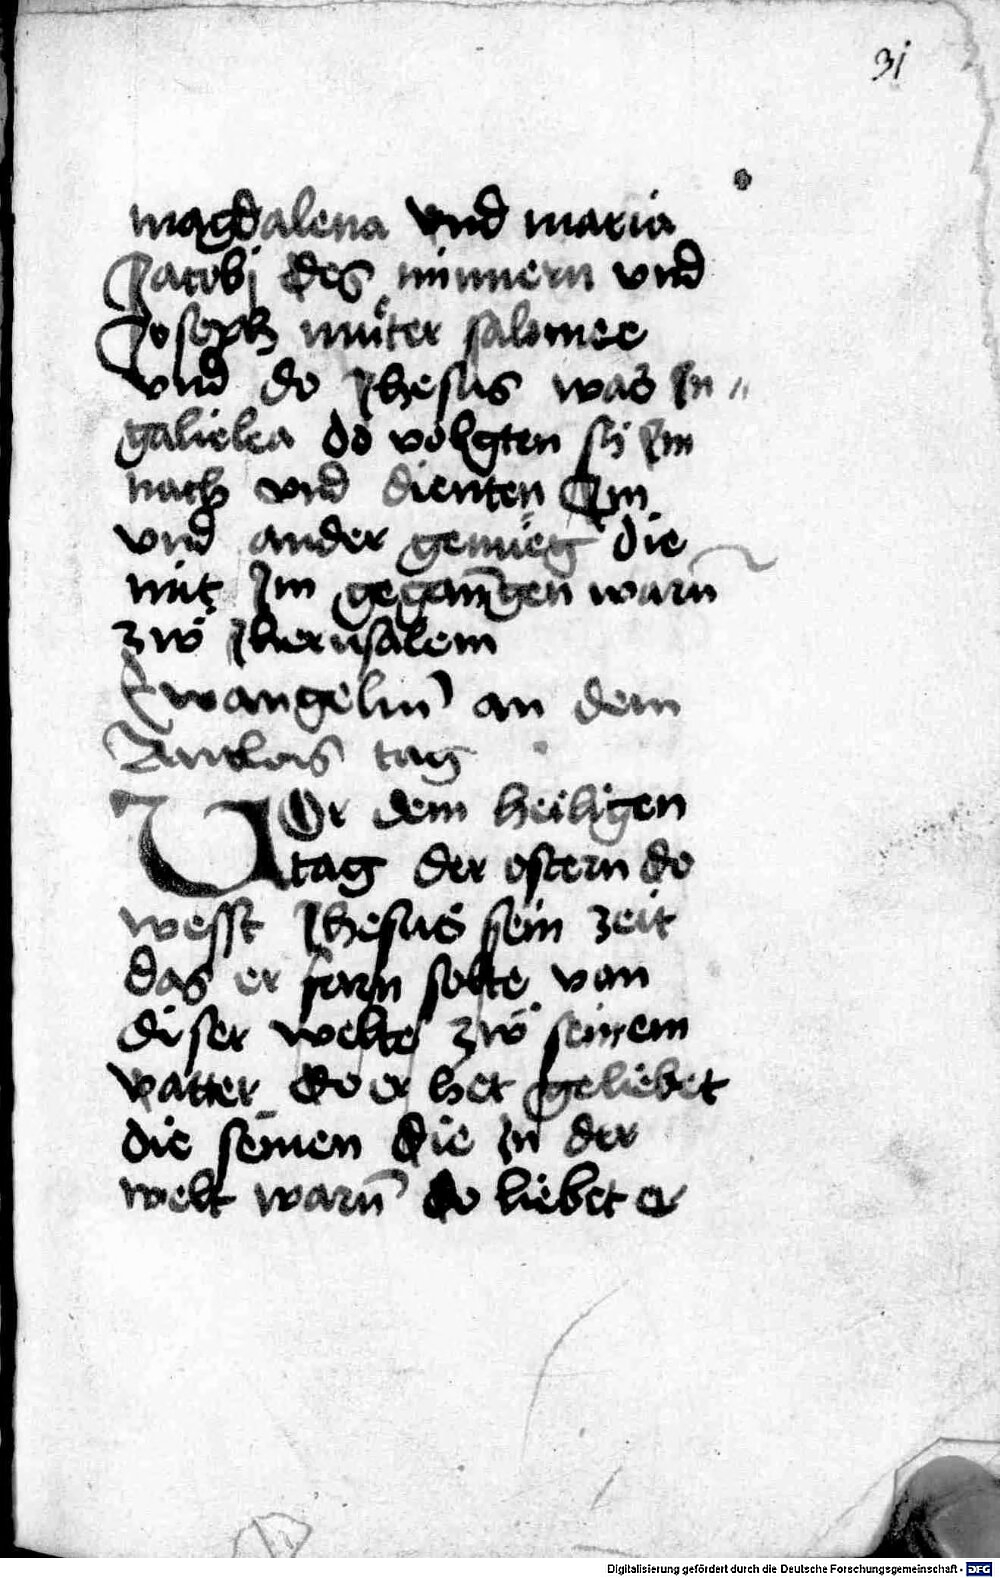 31
magdalena vnd maria
Jacobj des minnern vnd
Joseph muͦter salomee
vnd do Jhesus was Jn "
galielea do volgten sij Jm
nach vnd dienten Jm
vnd ander genuͤg die
mit Jm gegangen warn̄
zwͦ Jherusalem
Ewangeliu̅ an dem
Antlas tag
VOr dem heiligen
tag der ostern do
wesst Jhesus sein zeit
das er farn solte von
diser welte zwͦ seinem
vatter do er het geliebet
die seinen die Jn der
welt warn̄ do liebet er
Digitalisierung gefördert durch die Deutsche Forschungsgemeinschaft - DFG